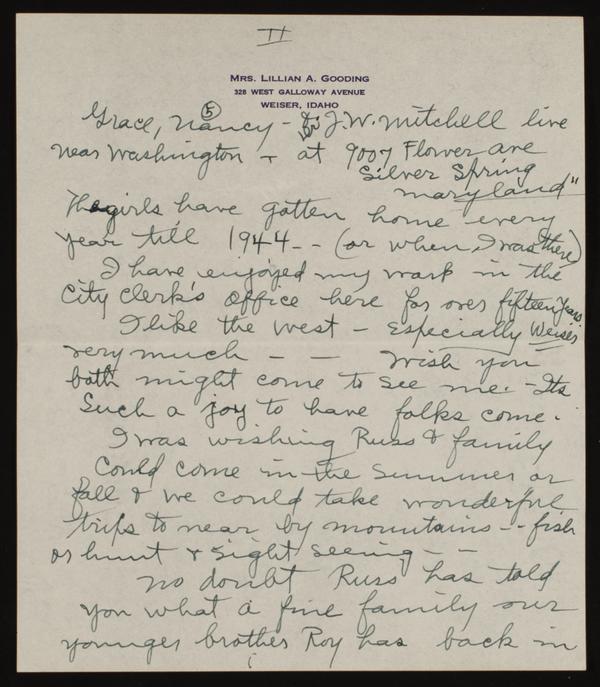 II
MRS. LILLIAN A. GOODING
328 WEST GALLOWAY AVENUE
WEISER, IDAHO
Grace, Nancy (5) - & J.W. Mitchell live
near Washington + at 9007 Flower ave
Silver Spring
maryland"
The girls have gotten home every
year till 1944 - - (or when I was there)
I have enjoyed my work in the
City Clerk's office here for over fifteen years
I like the west - especially Weiser
very much - - Wish you
both might come to see me. - Its
Such a joy to have folks come.
I was wishing Russ & family
Could come in the Summer or
fall & we could take wonderful
trips to near by mountains - - fish
or hunt & sight seeing - -
No doubt Russ has told
you what a fine family our
younger brother Roy has back in